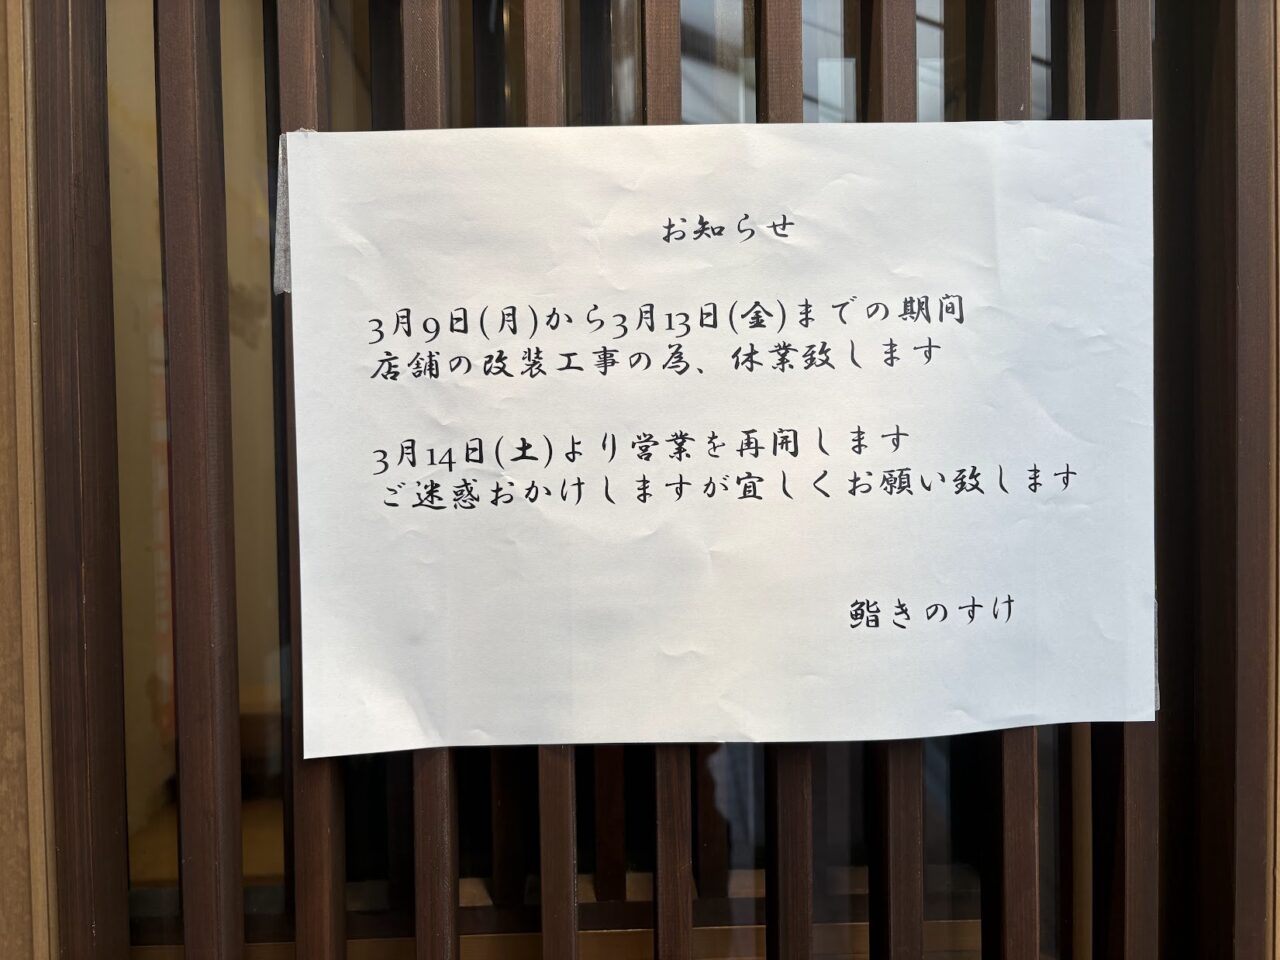 お知らせ
3月9日(月)から3月13日(金)までの期間
店舗の改装工事の為、休業致します
3月14日(土)より営業を再開します
ご迷惑おかけしますが宜しくお願い致します
鮨きのすけ